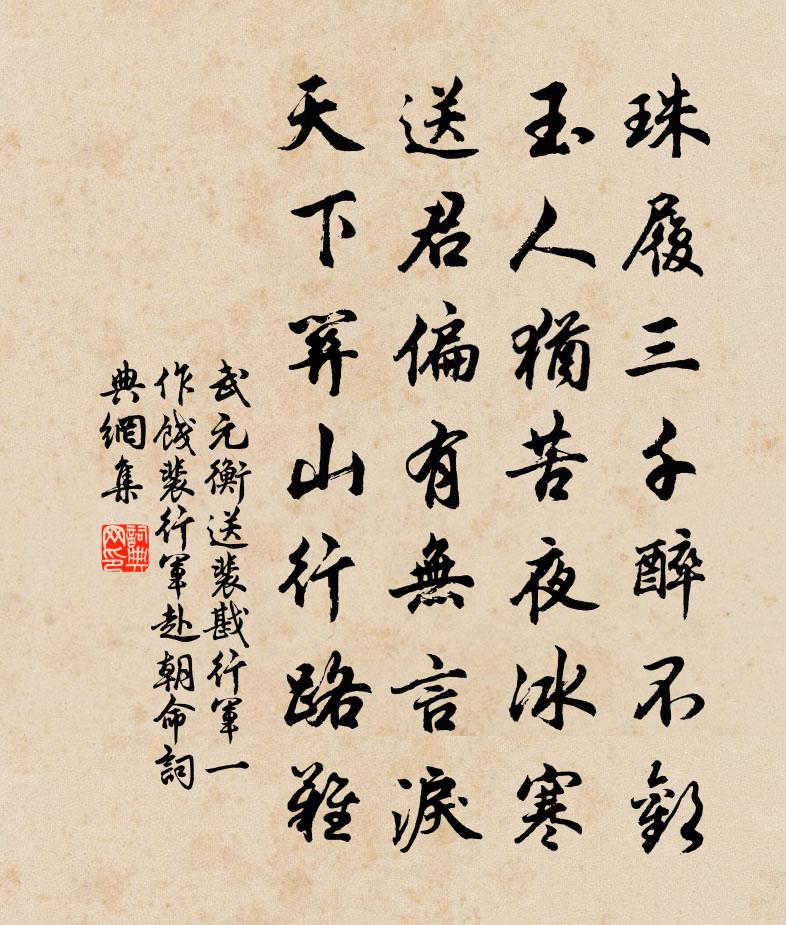 珠履三千醉不歡
玉人猶苦夜冰寒
送君偏有無言淚
天下關山行路難
武元衡送裴戡行軍一
作餞裴行軍赴朝命詞
典網集
詞典
网印